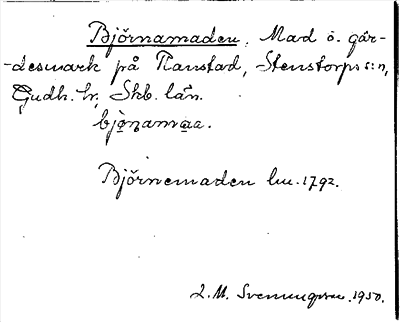 Björnamaden. Mad ö. går-
-desmark på Ranstad, Stenstorps s:n,
Gudh. hr, Skb. län.
bjönamaa.
Björnemaden lm. 1792.
1950.